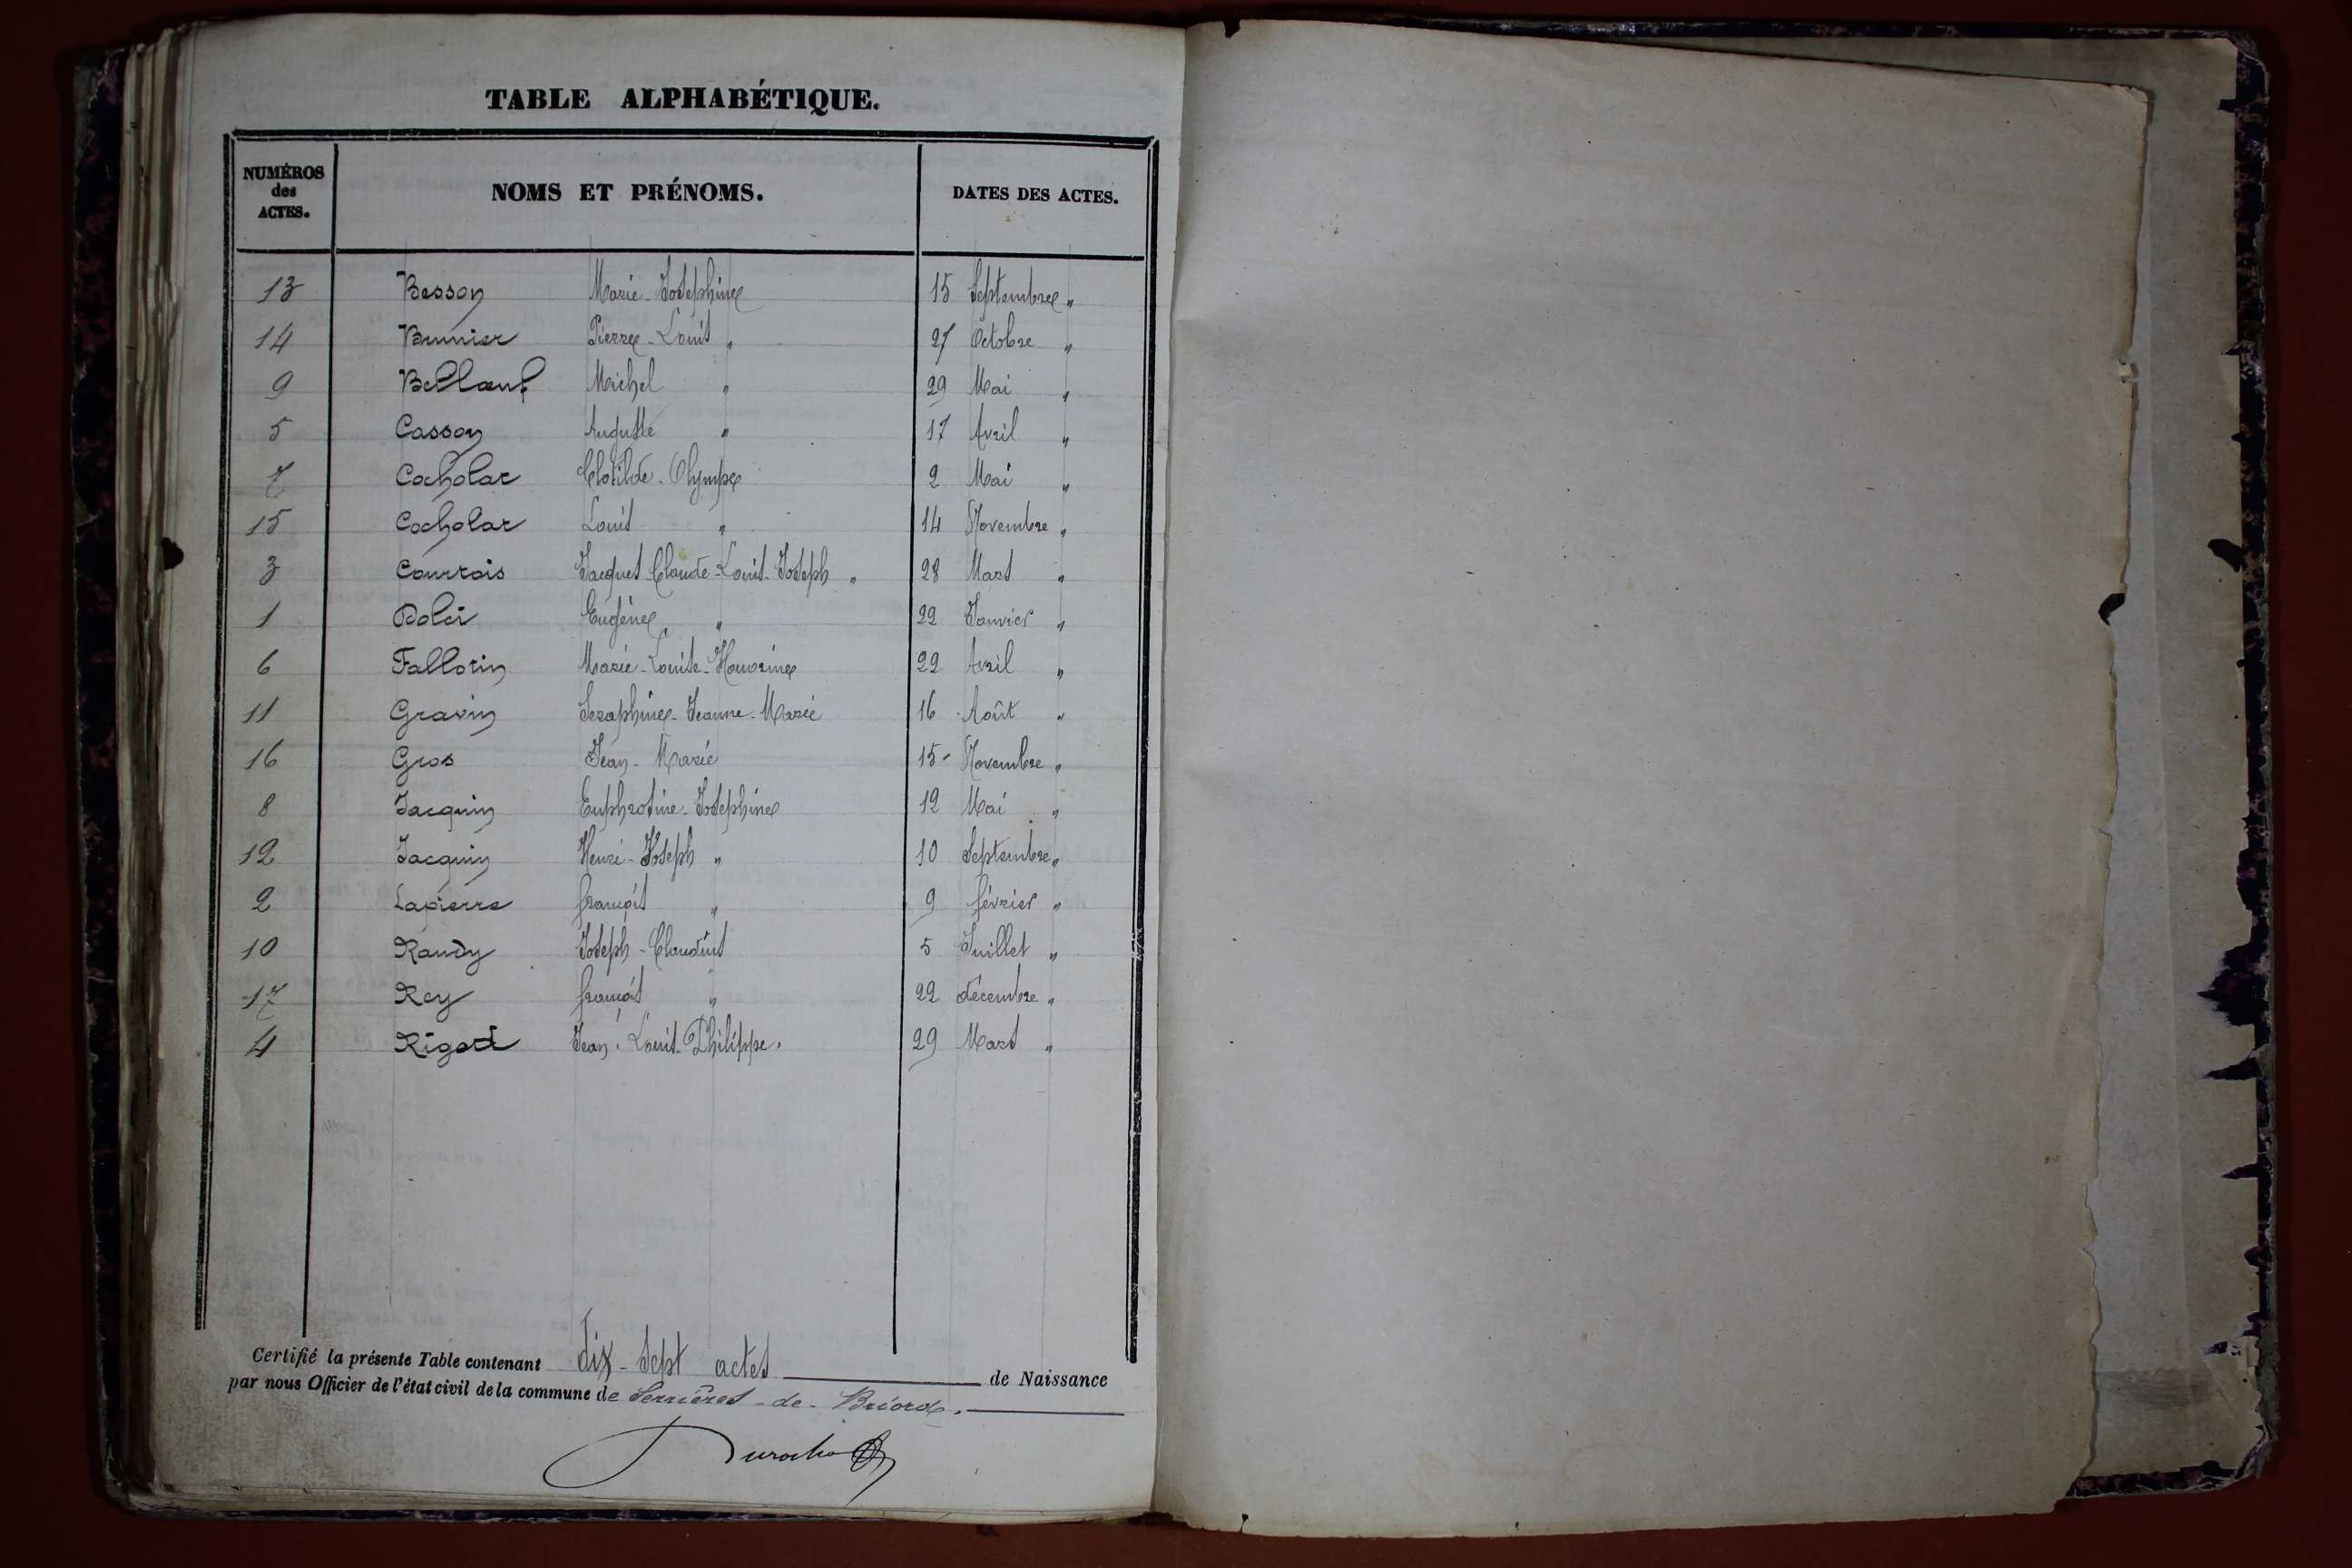 TABLE ALPHABÉTIQUE.
NUMÉROS des ACTES. NOMS ET PRÉNOMS. DATES DES ACTES.
13 Besson Marie-Josephine 15 Septembre "
14 Brunier Pierre-Louis " 27 Octobre "
9 Michel " 29 Mai "
5 Casson Auguste " 17 Avril "
7 Cocholat Clotilde-Olympe 2 Mai "
15 Cocholat Louis " 14 Novembre "
3 Courtois Jacques-Claude-Louis-Joseph " 28 Mars "
1 Dolci Eugène " 22 Janvier "
6 Fallotin Marie-Louise-Honorine 22 Avril "
11 Gravin Seraphine-Jeanne-Marie 16 Août "
16 Gros Jean-Marie 15 Novembre "
8 Jacquin Euphrosine-Josephine 12 Mai "
12 Jacquin Henri-Joseph " 10 Septembre "
2 Lapierre françois " 9 février "
10 Randy Joseph-Claudius 5 Juillet "
17 Rey françois " 22 décembre "
4 Rigod Jean-Louis-Philippe. 29 Mars "
Certifié la présente Table contenant dix-sept actes de Naissance
par nous Officier de l'état civil de la commune de Serrières-de-Briord.